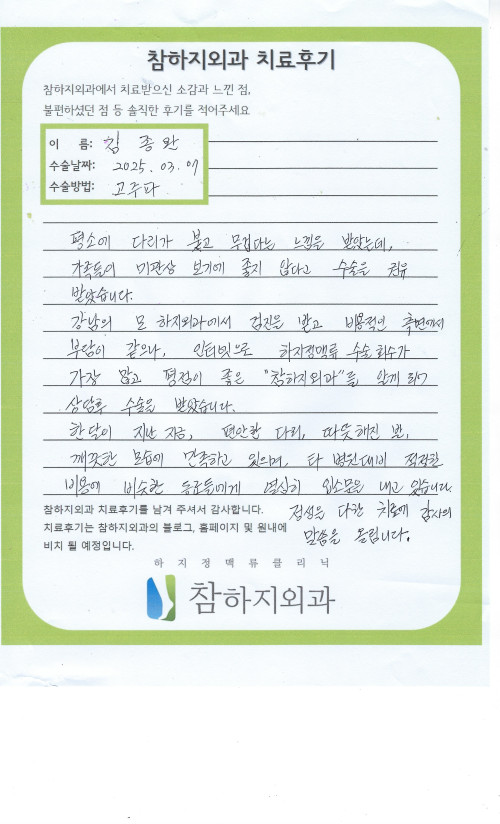 참하지외과 치료후기
참하지외과에서 치료받으신 소감과 느낀 점,
불편하셨던 점 등 솔직한 후기를 적어주세요
이 름: 김종완
수술날짜: 2025. 03. 07
수술방법: 고주파
평소에 다리가 붓고 무겁다는 느낌을 받았는데,
가족들이 미관상 보기에 좋지 않다고 수술을 권유
받았습니다.
강남의 모 하지외과에서 검진을 받고 비용적인 측면에서
부담이 같으나, 인터넷으로 하지정맥류 수술 회수가
가장 많고 평점이 좋은 "참하지외과"를 알게 되어
상담후 수술을 받았습니다.
한달이 지난 지금, 편안한 다리, 따뜻해진 발,
깨끗한 모습에 만족하고 있으며, 타 병원대비 적정한
비용에 비슷한 동료들에게 열심히 입소문을 내고 있습니다.
정성을 다한 치료에 감사의
말씀을 올립니다.
참하지외과 치료후기를 남겨 주셔서 감사합니다.
치료후기는 참하지외과의 블로그, 홈페이지 및 원내에
비치 될 예정입니다.
하지정맥류클리닉
참하지외과